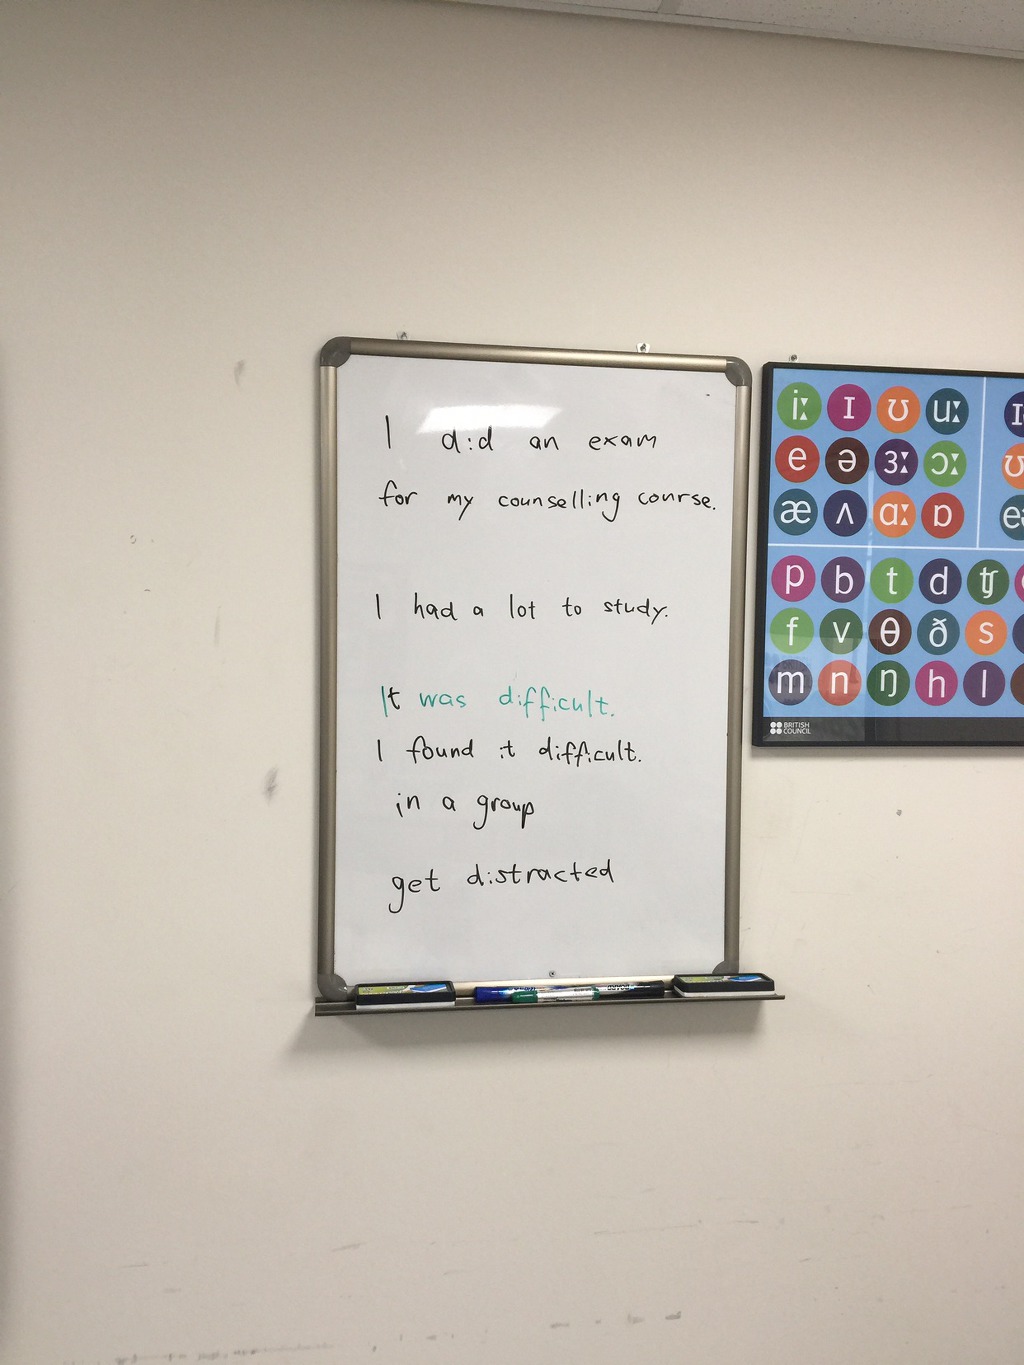 I did an exam
for my counselling course.
I had a lot to study.
It was difficult.
I found it difficult.
in a group
get distracted
iː ɪ ʊ uː
e ə ɜː ɔː
æ ʌ ɑː ɒ
p b t d ʧ
f v θ ð s
m n ŋ h l
BRITISH
COUNCIL